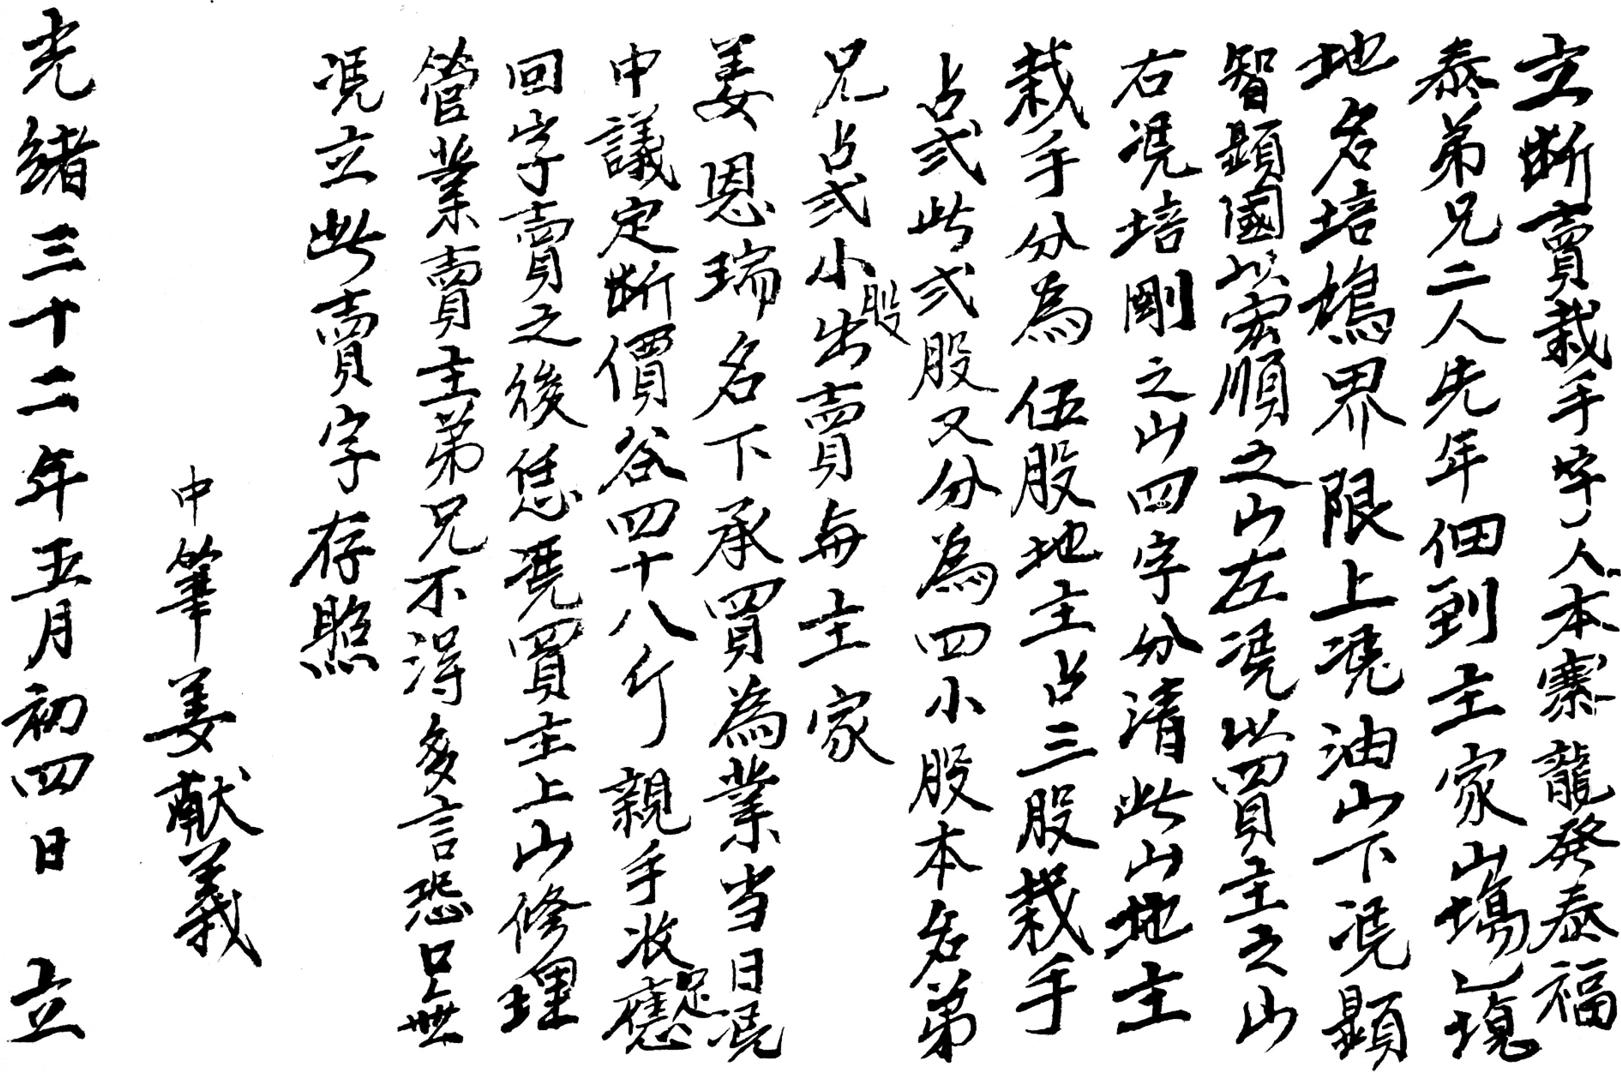 立断賣栽手字人本寨龍發泰福
泰弟兄二人先年佃到主家山塲乙塊
地名培鳩界限上凴油山下凴顕
智顕國以宏順之山左凴此買主之山
右凴培剛之山四字分清此山地主
栽手分為伍股地主占三股栽手
占弍此弍股又分為四小股本名弟
兄占弍小股出賣與主家
姜恩瑞名下承買為業当日凴
中議定断價谷四十八斤親手收足應
回字賣之後恁凴買主上山修理
管業賣主弟兄不淂多言恐口無
凴立此賣字存照
中筆姜献義
光緒三十二年五月初四日立